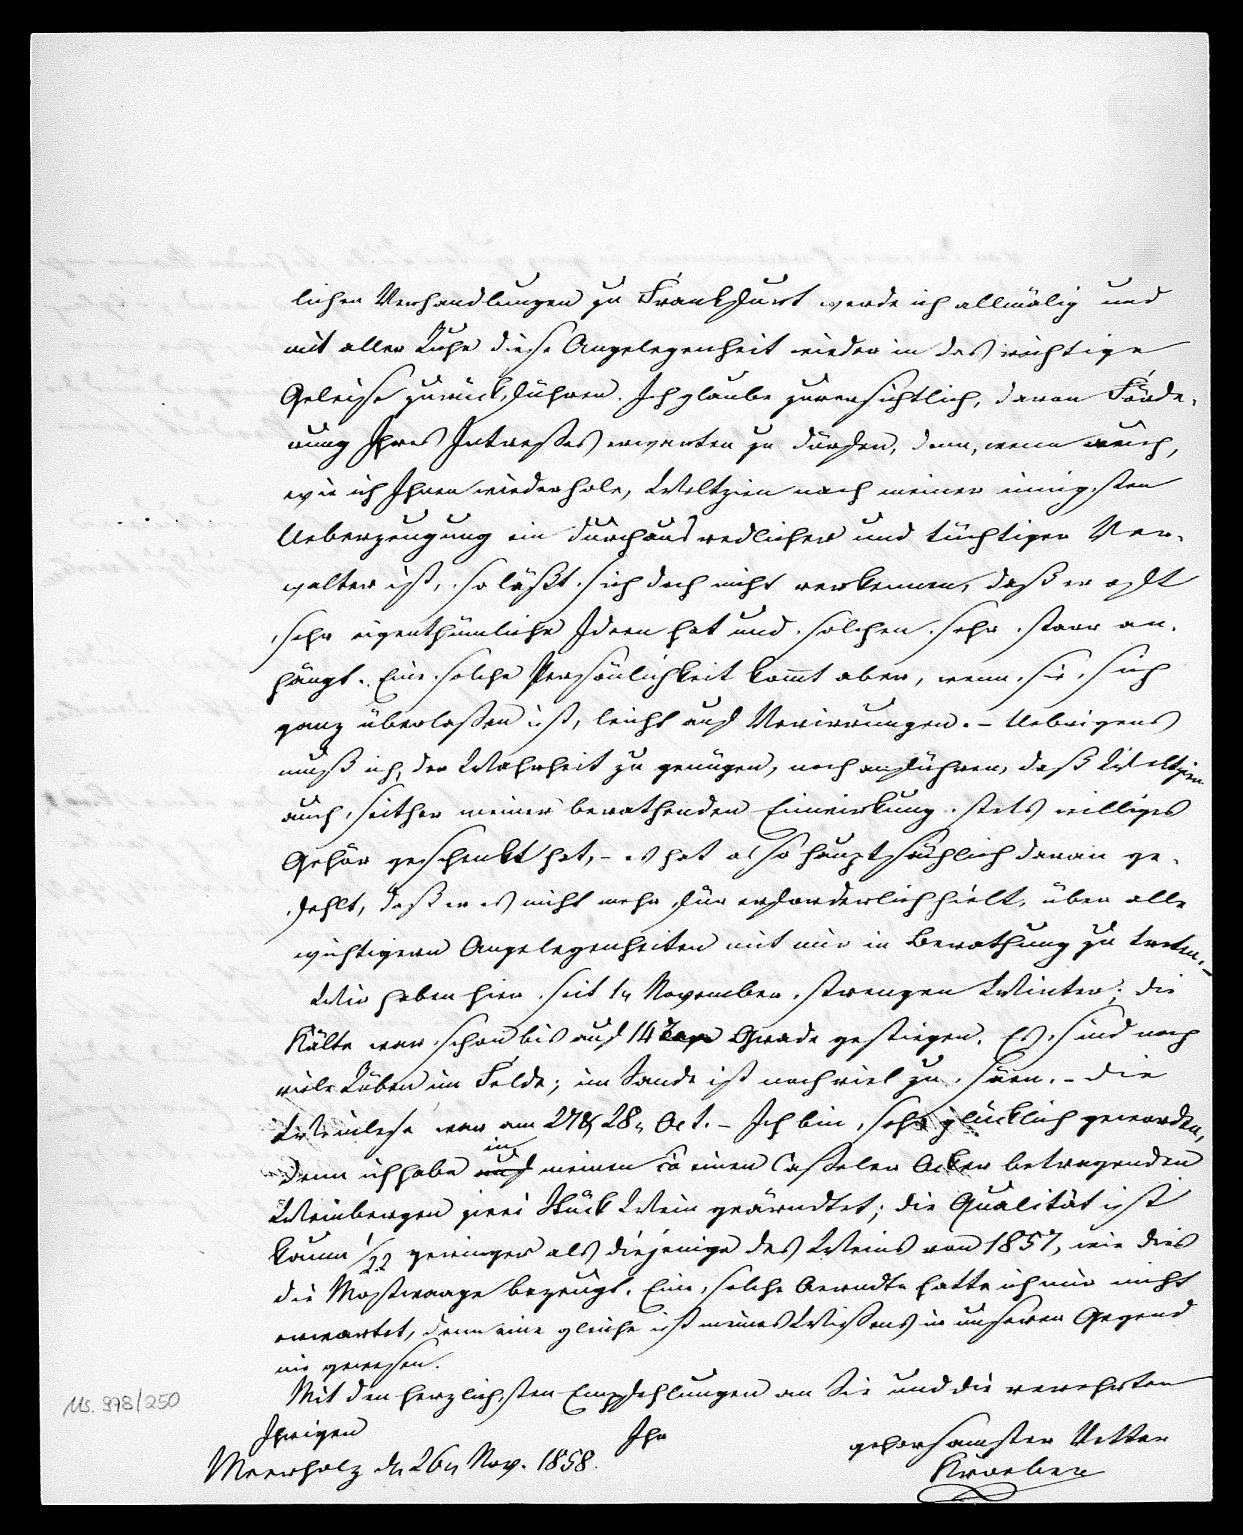 lichen Verhandlungen zu Frankfurt werde ich allmälig und
mit aller Ruhe diese Angelegenheit wieder in das richtige
Geleise zurückführen. Ich glaube zuversichtlich, davon Förde-
rung Ihres Intresses erwarten zu dürfen, denn, wenn auch,
wie ich Ihnen wiederhole, Weltzien nach meiner innigsten
Ueberzeugung ein durchaus redlicher und tüchtiger Ver-
walter ist, so läßt sich doch nicht verkennen, daß er oft
sehr eigenthümliche Ideen hat und solchen sehr starr an-
hängt. Eine solche Persönlichkeit kommt aber, wenn sie sich
ganz überlassen ist, leicht auf Verirrungen. – Uebrigens
muß ich, der Wahrheit zu genügen, noch anführen, daß Weltzien
auch seither meiner berathenden Einwirkung stets williges
Gehör geschenkt hat, – es hat also hauptsächlich daran ge-
fehlt, daß er es nicht mehr für erforderlich hielt, über alle
wichtigern Angelegenheiten mit mir in Berathung zu treten. –
Wir haben hier seit 1n November strengen Winter; die
Kälte war schon bis auf 14 Grade gestiegen. Es sind noch
viele Rüben im Felde; im Sande ist noch viel zu säen. – Die
Weinlese war am 27 & 28n Oct. – Ich bin sehr glücklich geworden,
denn ich habe in meinen einen Casseler Acker betragenden
Weinbergen zwei Stück Wein geärndtet; die Qualität ist
kaum 1/22 geringer als diejenige des Weins von 1857, wie dies
die Mostwaage bezeugt. Eine solche Aerndte hatte ich mir nicht
erwartet, denn eine gleiche ist meines Wissens in unserer Gegend
nie gewesen.
Mit den herzlichsten Empfehlungen an Sie und die verehrten
Ihrigen
Ihr
gehorsamster Vetter
Meerholz dn 26n Nov. 1858.
Kroeber
Ms. 978/250